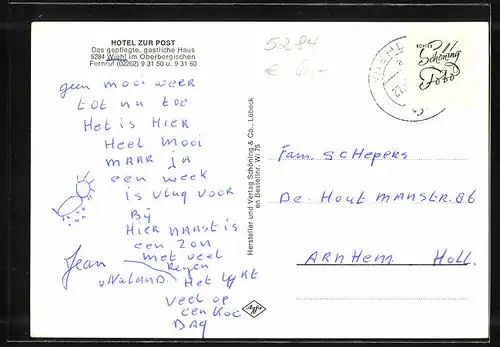 HOTEL ZUR POST
Das gepflegte, gastliche Haus
5284 Wiehl im Oberbergischen
Fernruf (02262) 9 31 50 u. 9 31 60
5284
€ 6,-
WIEHL
ECHTES
Schöning
Foto
geen mooi weer
tot nu toe
Het is HIER
Heel mooi
MAAR ja
een week
is vlug voor
Bij
HIER naast is
een zon
met veel
Regen
Jean
v Nuland
Het lykt
veel op
een koe
DAG
Hersteller und Verlag Schöning & Co., Lübeck
en Bestellnr. Wi 75
Fam. SCHEPERS
De. Hout MANSTR. 86
ARNHEM HOLL.
Agfa